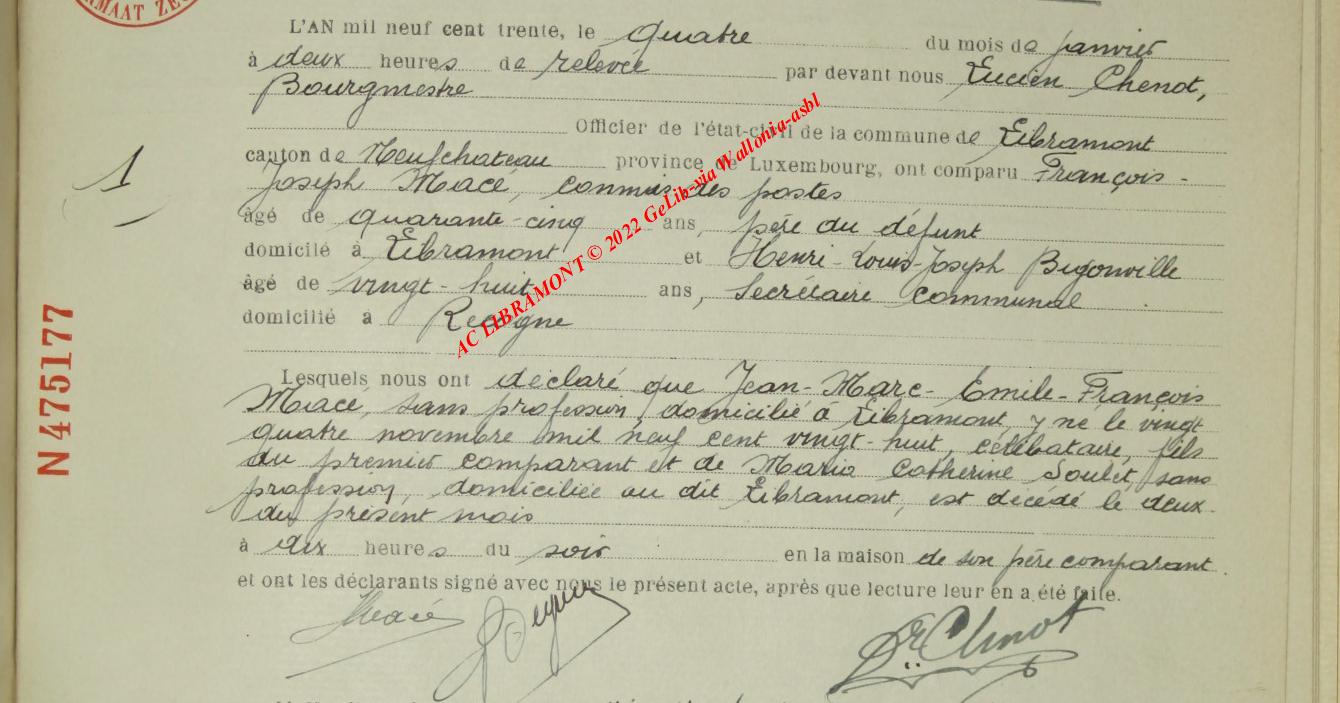 RMAAT ZE
L'AN mil neuf cent trente, le quatre du mois de janvier
à deux heures de relevée par devant nous Lucien Chenot,
Bourgmestre
Officier de l'état-civil de la commune de Libramont
canton de Neufchateau province de Luxembourg, ont comparu François-
Joseph Macé, commis des postes
âgé de quarante-cinq ans, père du défunt
domicilié à Libramont et Henri-Louis-Joseph Bigonville
âgé de vingt-huit ans, Secrétaire communal
domicilié à Recogne
Lesquels nous ont déclaré que Jean-Marc-Emile-François
Macé, sans profession, domicilié à Libramont, y né le vingt
quatre novembre mil neuf cent vingt-huit, célibataire, fils
du premier comparant et de Maria Catherine Soulet, sans
profession, domiciliée au dit Libramont, est décédé le deux
du présent mois
à dix heures du soir en la maison de son père comparant
et ont les déclarants signé avec nous le présent acte, après que lecture leur en a été faite.
Macé
Chenot
1
N 475177
AC LIBRAMONT © 2022 GeLib-via Wallonia-asbl